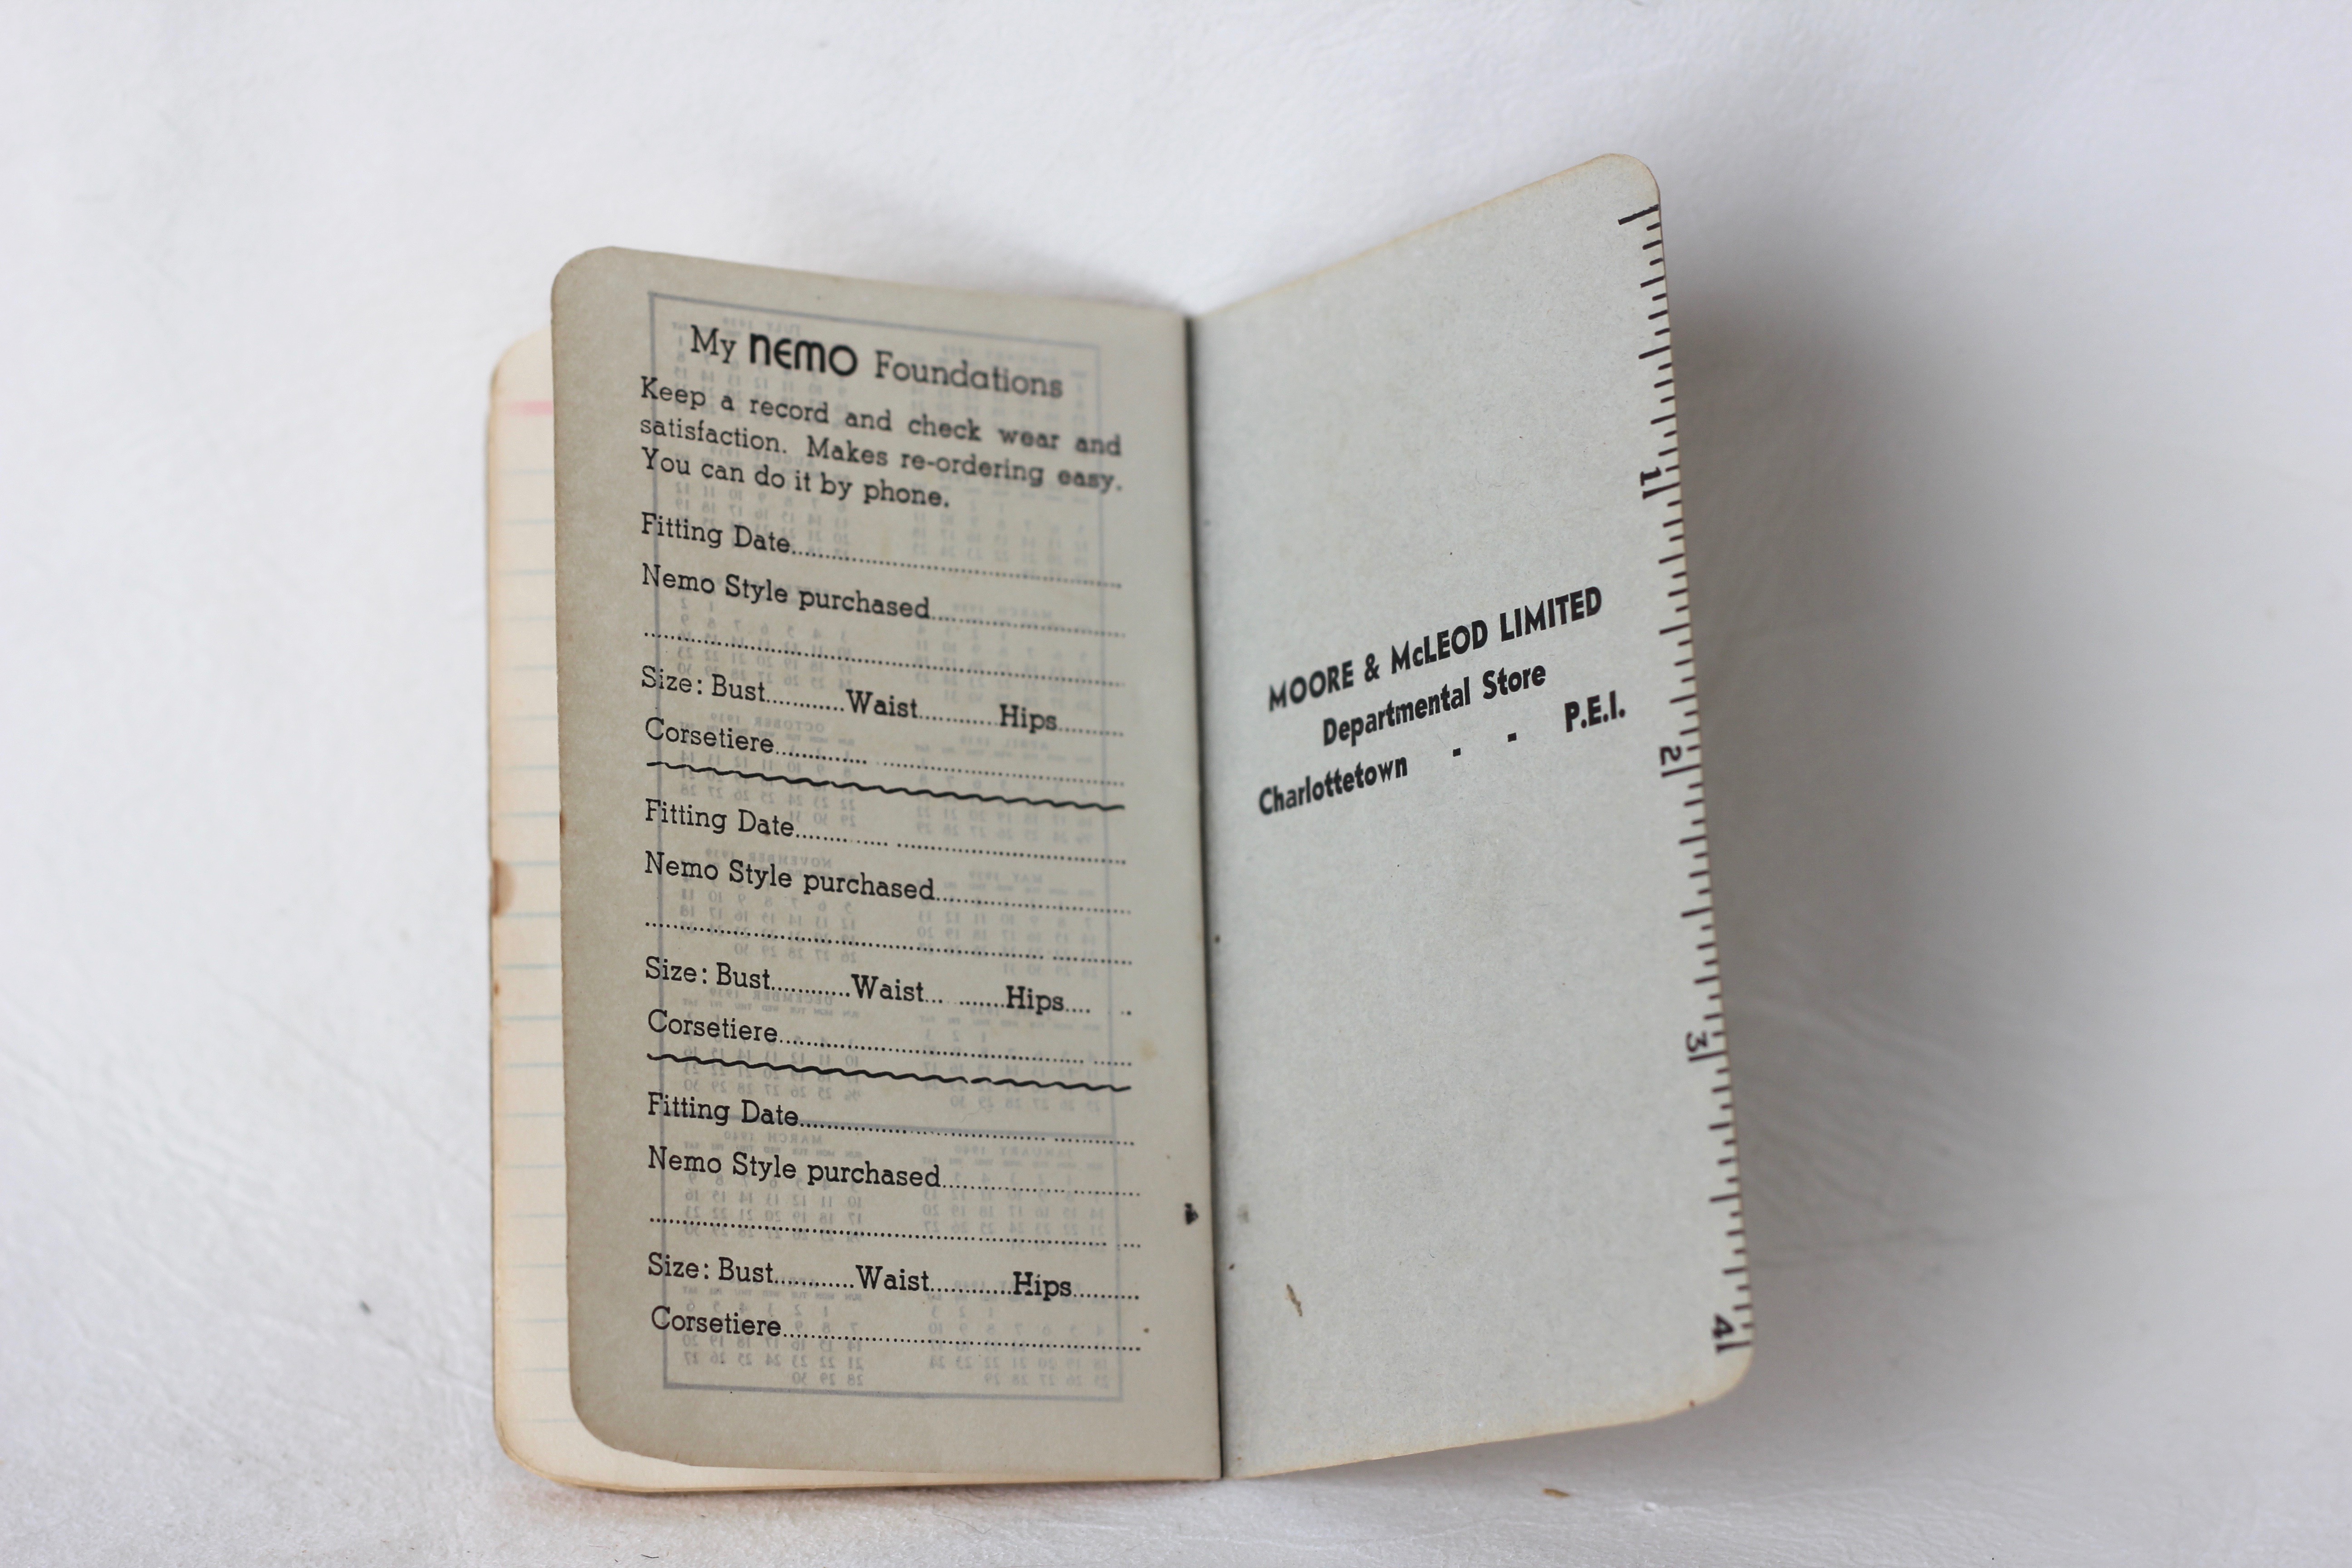 My NEMO Foundations
Keep a record and check wear and
satisfaction. Makes re-ordering easy.
You can do it by phone.
Fitting Date
Nemo Style purchased
Size: Bust Waist Hips
Corsetiere
Fitting Date
Nemo Style purchased
Size: Bust Waist Hips
Corsetiere
Fitting Date
Nemo Style purchased
Size: Bust Waist Hips
Corsetiere
MOORE & McLEOD LIMITED
Departmental Store
Charlottetown - - P.E.I.
1
2
3
4